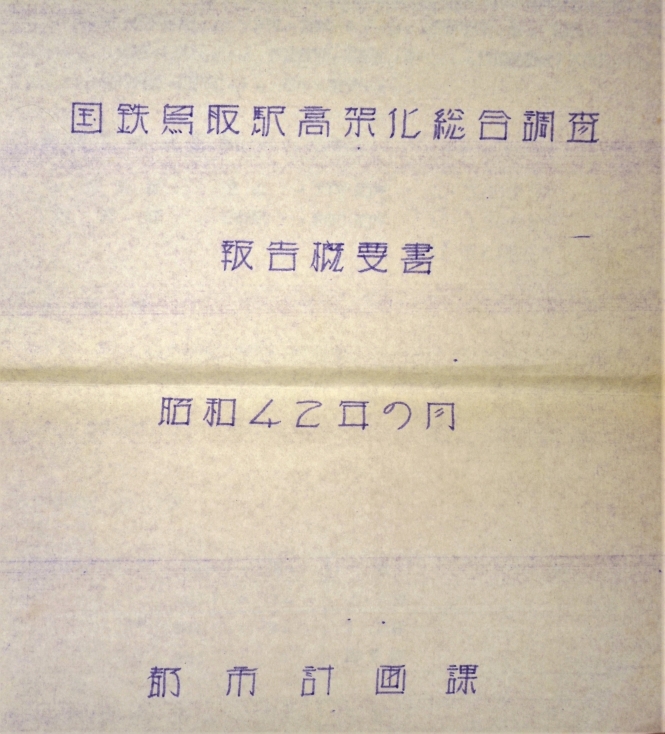 国鉄鳥取駅高架化総合調査
報告概要書
昭和42年9月
都市計画課